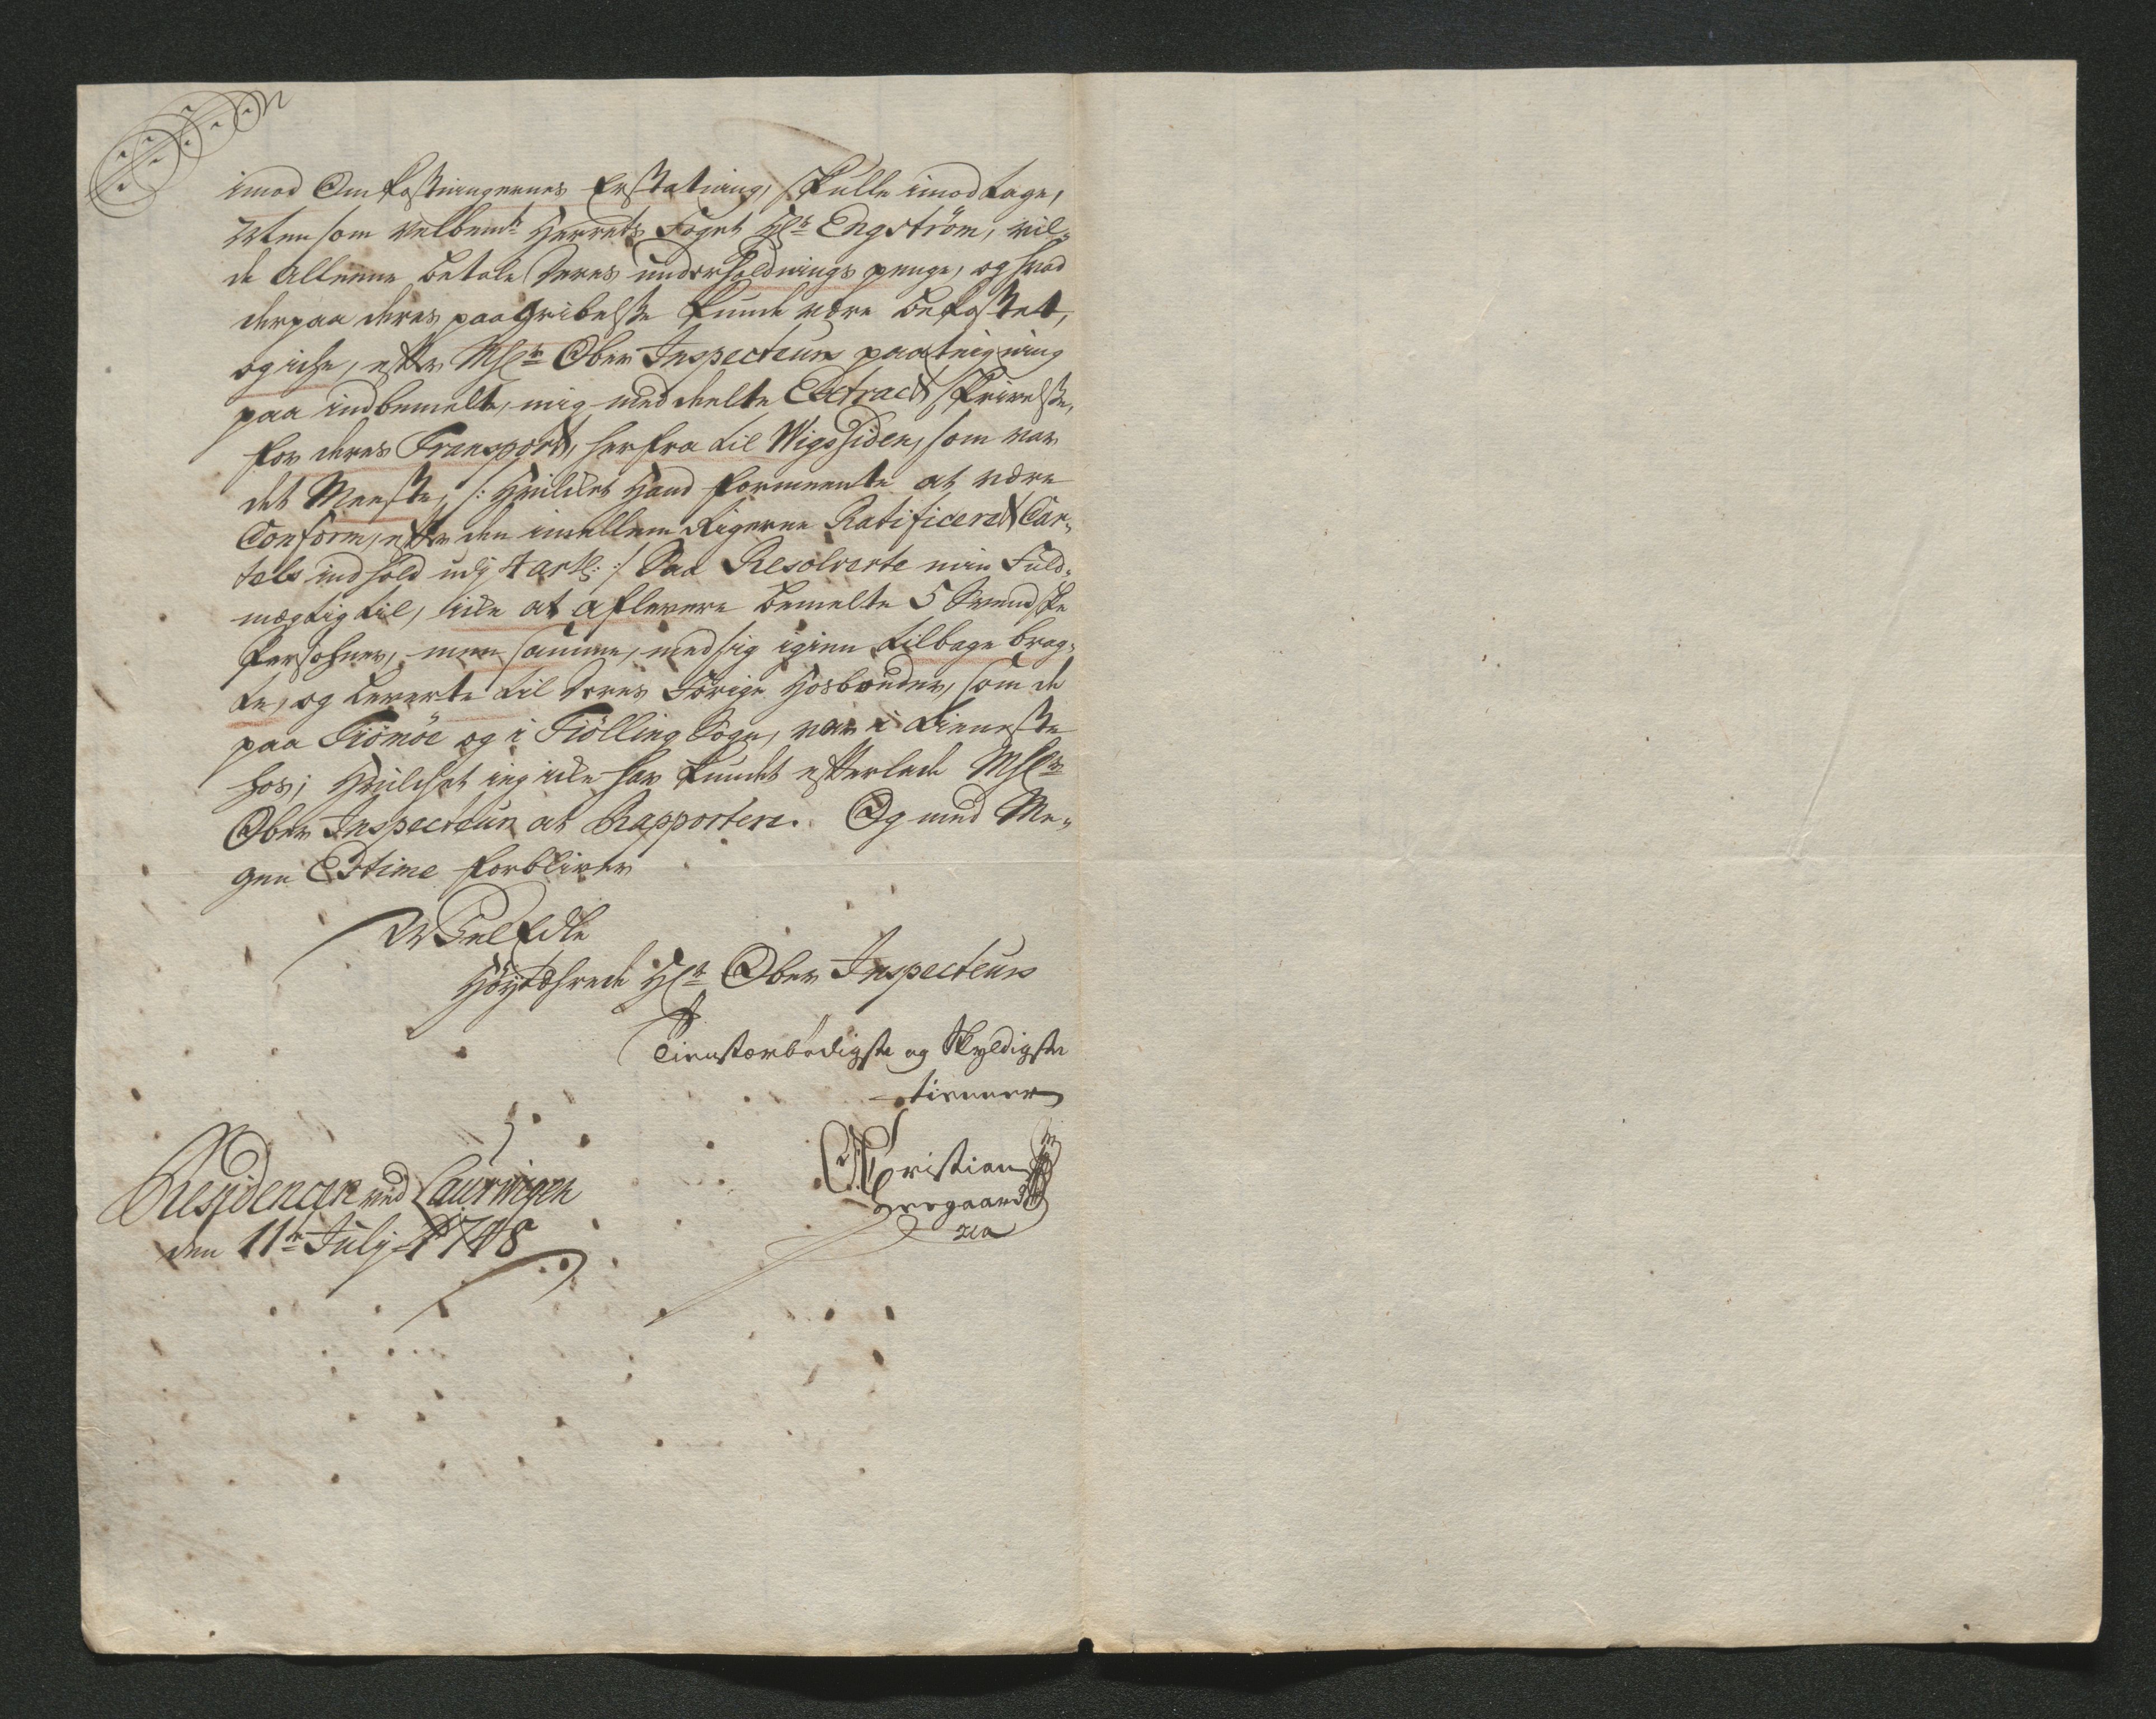 imod Omkostningernes Erstatning, skulle imodtage,
Men som velbemte Herrets Foget Hr Engström, vil-
de Alleene betale deres underholdnings penge, og hvad
derpaa deres paagribelse kunde være bekostet,
og icke, efter Msr Ober Inspecteurs paateigning
paa indbemelte, mig meddeelte Extract skrivelse,
for deres Transport, herfra til Wigssiden, som var
det Meeste, /: Hvilcket Hand formeente at være
Conform, efter den imellem Rigerne Ratificeret Car-
tels indhold udj 4 artl: :/ Saa Resolverte min Fuld-
mægtig til, icke at aflevere bemelte 5 Svendske
Persohner, men samme, med sig igien tilbage brag-
te, og Leverte til deres Forige Hosbonder, som de
paa Tiömöe og i Tiölling Sogn, var i tieneste
hos; Hvilcket ieg icke har kundet efterlade Msr
Ober Inspecteur at Rapportere. Og med Me-
gen Estime forbliver
Wel Edle
Höytærede Hr Ober Inspecteurs
Tienstærbödigste og Skyldigste
tienner
Christian
Heegaard
Residencen ved Laurwigen
den 11te July 1748